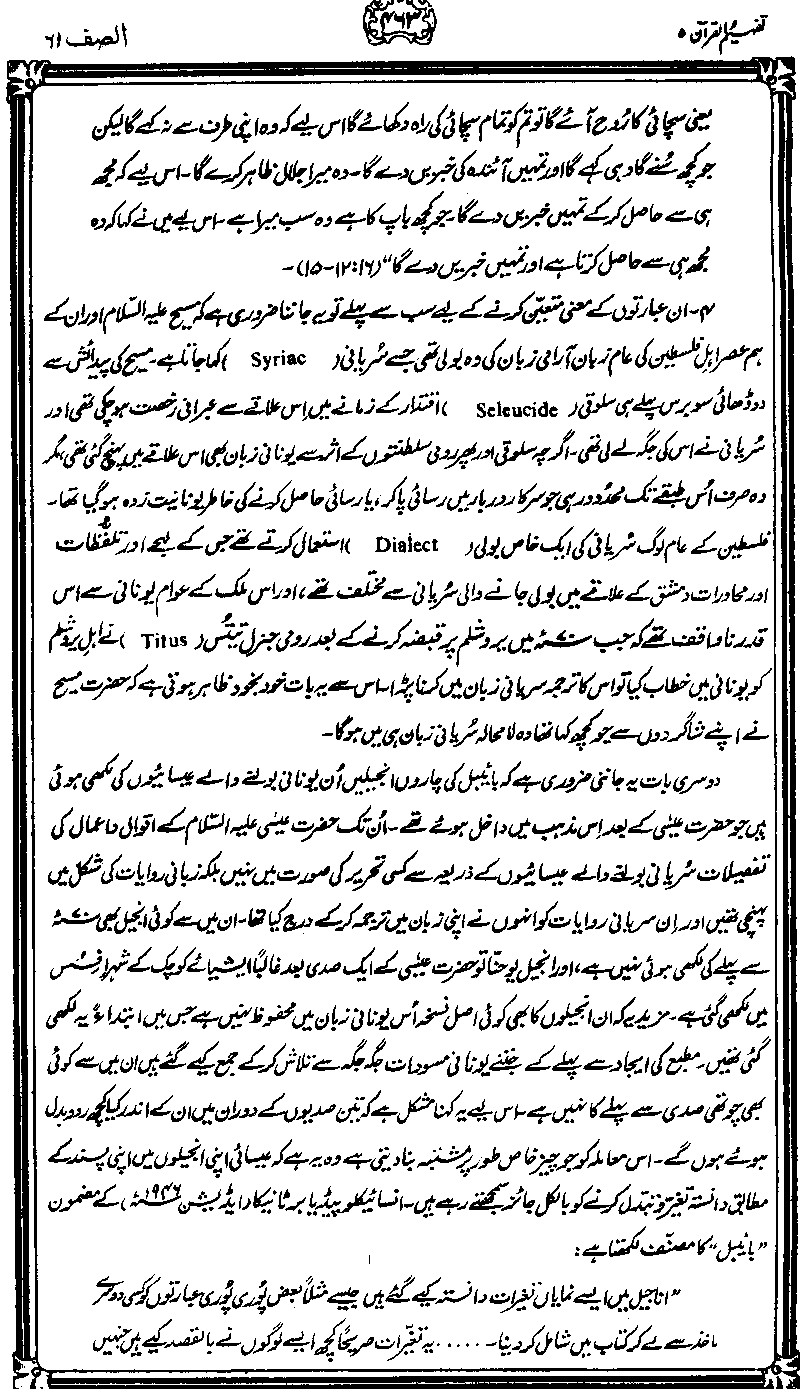 تفہیم القرآن ۵
۴۶۳
الصف ۶۱
یعنی سچائی کا رُوح آئے گا تو تم کو تمام سچائی کی راہ دکھائے گا اس لیے کہ وہ اپنی طرف سے نہ کہے گا لیکن
جو کچھ سُنے گا وہی کہے گا اور تمہیں آئندہ کی خبریں دے گا۔ وہ میرا جلال ظاہر کرے گا۔ اس لیے کہ مجھ
ہی سے حاصل کر کے تمہیں خبریں دے گا۔ جو کچھ باپ کا ہے وہ سب میرا ہے۔ اس لیے میں نے کہا کہ وہ
مجھ ہی سے حاصل کرتا ہے اور تمہیں خبریں دے گا“ (۱۶:۱۲-۱۵)۔
۴۔ ان عبارتوں کے معنی متعیّن کرنے کے لیے سب سے پہلے تو یہ جاننا ضروری ہے کہ مسیح علیہ السّلام اور ان کے
ہم عصر اہل فلسطین کی عام زبان آرامی زبان کی وہ بولی تھی جسے سُریانی (Syriac) کہا جاتا ہے۔ مسیح کی پیدائش سے
دو ڈھائی سو برس پہلے ہی سلوقی (Seleucide) اقتدار کے زمانے میں اِس علاقے سے عبرانی رخصت ہو چکی تھی اور
سُریانی نے اس کی جگہ لے لی تھی۔ اگرچہ سلوقی اور پھر رومی سلطنتوں کے اثر سے یونانی زبان بھی اس علاقے میں پہنچ گئی تھی، مگر
وہ صرف اُس طبقے تک محدُود رہی جو سرکار دربار میں رسائی پا کر، یا رسائی حاصل کرنے کی خاطر یونانیت زدہ ہو گیا تھا۔
فلسطین کے عام لوگ سُریانی کی ایک خاص بولی (Dialect) استعمال کرتے تھے جس کے لہجے اور تلفّظات
اور محاورات دمشق کے علاقے میں بولی جانے والی سُریانی سے مختلف تھے، اور اس ملک کے عوام یونانی سے اس
قدر ناواقف تھے کہ جب ۷۰ء میں یروشلم پر قبضہ کرنے کے بعد رومی جنرل تیتُس (Titus) نے اہل یروشلم
کو یونانی میں خطاب کیا تو اس کا ترجمہ سریانی زبان میں کرنا پڑا۔ اس سے یہ بات خود بخود ظاہر ہوتی ہے کہ حضرت مسیح
نے اپنے شاگردوں سے جو کچھ کہا تھا وہ لا محالہ سُریانی زبان ہی میں ہوگا۔
دوسری بات یہ جاننی ضروری ہے کہ بائیبل کی چاروں انجیلیں اُن یونانی بولنے والے عیسائیوں کی لکھی ہوئی
ہیں جو حضرت عیسٰی کے بعد اِس مذہب میں داخل ہوئے تھے۔ اُن تک حضرت عیسٰی علیہ السّلام کے اقوال و اعمال کی
تفصیلات سُریانی بولنے والے عیسائیوں کے ذریعہ سے کسی تحریر کی صورت میں نہیں بلکہ زبانی روایات کی شکل میں
پہنچی تھیں اور اِن سریانی روایات کو انہوں نے اپنی زبان میں ترجمہ کر کے درج کیا تھا۔ ان میں سے کوئی انجیل بھی ۷۰ء
سے پہلے کی لکھی ہوئی نہیں ہے، اور انجیل یوحنّا تو حضرت عیسٰی کے ایک صدی بعد غالبًا ایشیائے کوچک کے شہر اِفِسُس
میں لکھی گئی ہے۔ مزید یہ کہ ان انجیلوں کا بھی کوئی اصل نسخہ اُس یونانی زبان میں محفوظ نہیں ہے جس میں ابتداءً یہ لکھی
گئی تھیں۔ مطبع کی ایجاد سے پہلے کے جتنے یونانی مسودات جگہ جگہ سے تلاش کر کے جمع کیے گئے ہیں ان میں سے کوئی
بھی چوتھی صدی سے پہلے کا نہیں ہے۔ اس لیے یہ کہنا مشکل ہے کہ تین صدیوں کے دوران میں ان کے اندر کیا کچھ ردو بدل
ہوئے ہوں گے۔ اس معاملہ کو جو چیز خاص طور پر مشتبہ بنا دیتی ہے وہ یہ ہے کہ عیسائی اپنی انجیلوں میں اپنی پسند کے
مطابق دانستہ تغیّر و تبدل کرنے کو بالکل جائز سمجھتے رہے ہیں۔ انسائیکلوپیڈیا برٹانیکا (ایڈیشن ۱۹۴۶ء) کے مضمون
”بائیبل“ کا مصنّف لکھتا ہے:
”اناجیل میں ایسے نمایاں تغیرات دانستہ کیے گئے ہیں جیسے مثلًا بعض پُوری پُوری عبارتوں کو کسی دوسرے
ماخذ سے لے کر کتاب میں شامل کر دینا۔ ..... یہ تغیّرات صریحًا کچھ ایسے لوگوں نے بالقصد کیے ہیں جنہیں